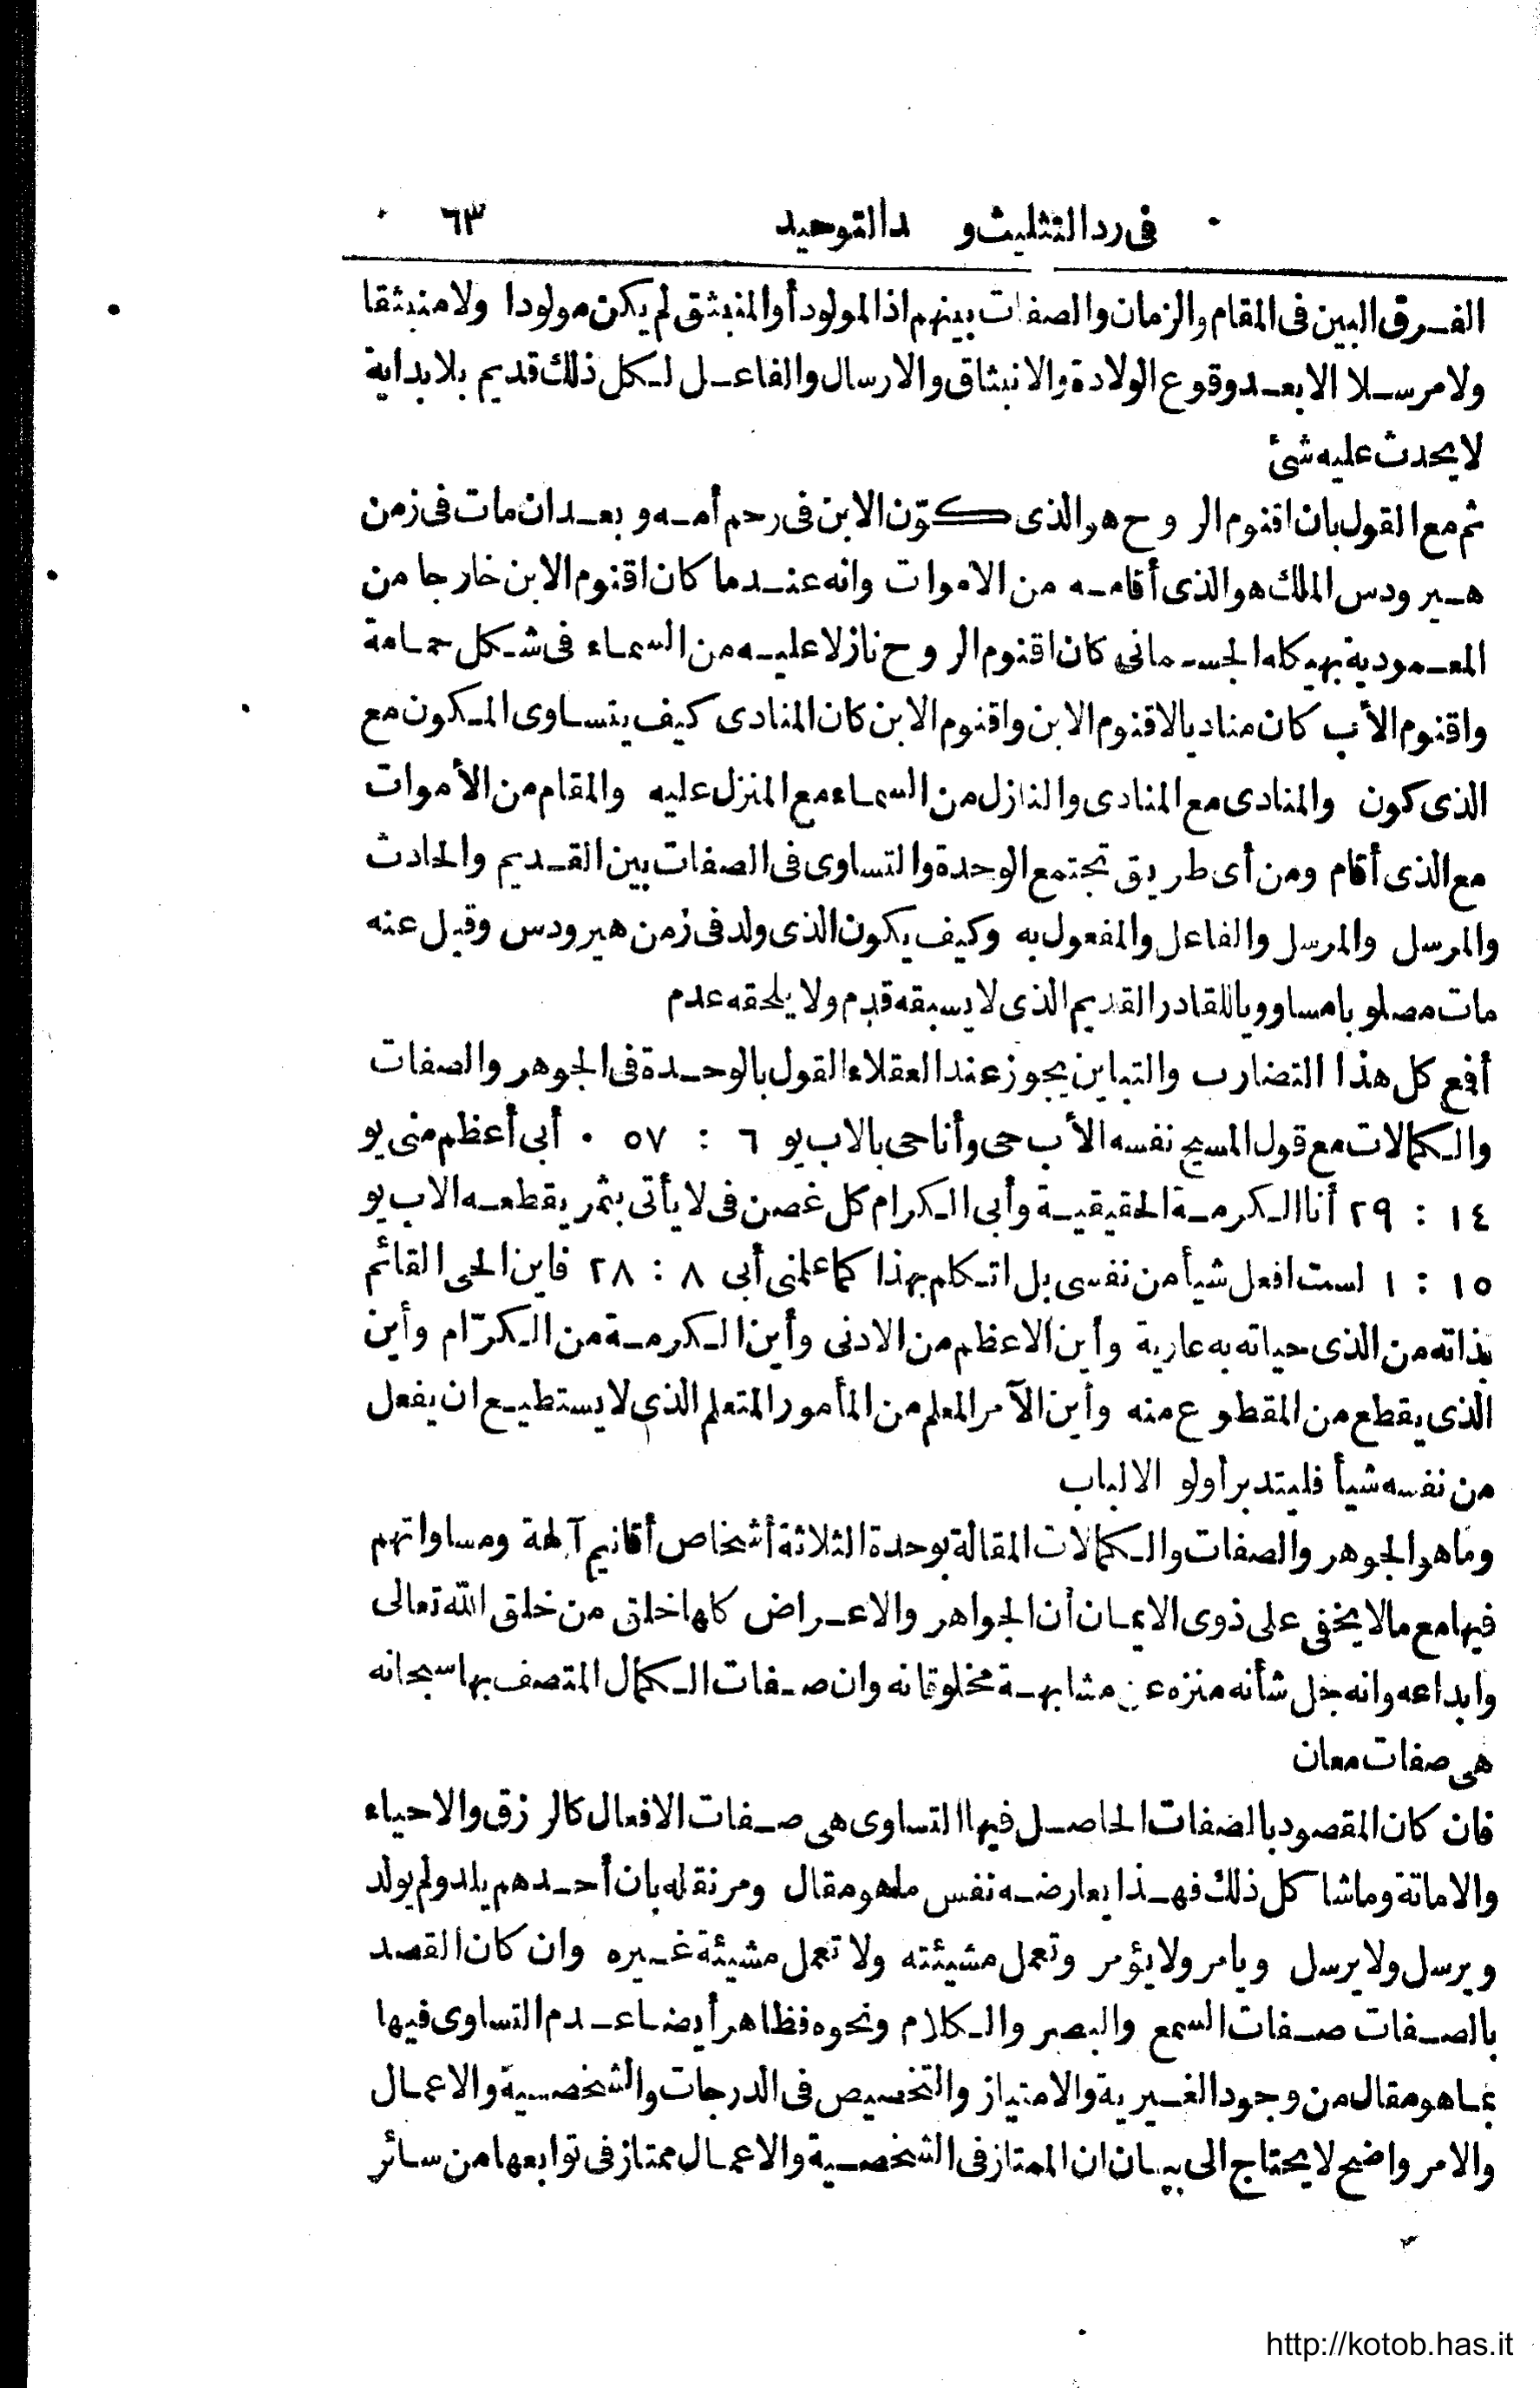 فى رد التثليث و دالتوحيد ٦٣
الفرق البين فى المقام والزمان والصفات بينهم اذ المولود أو المنبثق لم يكن مولودا ولا منبثقا
ولا مرسلا الا بعد وقوع الولادة والانبثاق والارسال والفاعل لكل ذلك قديم بلا بداية
لا يحدث عليه شئ
ثم مع القول بان اقنوم الروح هو الذى كوّن الابن فى رحم أمه و بعد ان مات فى زمن
هيرودس الملك هو الذى أقامه من الاموات وانه عندما كان اقنوم الابن خارجا من
المعمودية بهيكله الجسمانى كان اقنوم الروح نازلا عليه من السماء فى شكل حمامة
واقنوم الأب كان مناديا لاقنوم الابن واقنوم الابن كان المنادى كيف يتساوى المكون مع
الذى كون والمنادى مع المنادى والنازل من السماء مع المنزل عليه والمقام من الأموات
مع الذى أقام ومن أى طريق تجتمع الوحدة والتساوى فى الصفات بين القديم والحادث
والمرسل والمرسل والفاعل والمفعول به وكيف يكون الذى ولد فى زمن هيرودس وقيل عنه
مات مصلوبا مساوويا للقادر القديم الذى لا يسبقه قدم ولا يلحقه عدم
أفع كل هذا التضارب والتباين يجوز عند العقلاء القول بالوحدة فى الجوهر والصفات
والكمالات مع قول المسيح نفسه الأب حى وأنا حى بالاب يو ٦ : ٥٧ . أبى أعظم منى يو
١٤ : ٢٩ أنا الكرمة الحقيقية وأبى الكرام كل غصن فى لا يأتى بثمر يقطعه الاب يو
١٥ : ١ لست افعل شيأ من نفسى بل اتكلم بهذا كما علمنى أبى ٨ : ٢٨ فاين الحى القائم
بذاته من الذى حياته به عارية وأين الاعظم من الادنى وأين الكرمة من الكرّام وأين
الذى يقطع من المقطوع منه وأين الآمر المعلم من المأمور المتعلم الذى لا يستطيع ان يفعل
من نفسه شيأ فليتدبر أولو الالباب
وما هو الجوهر والصفات والكمالات المقالة بوحدة الثلاثة أشخاص أقانيم آلهة ومساواتهم
فيها مع ما لا يخفى على ذوى الايمان أن الجواهر والاعراض كلها خلق من خلق الله تعالى
وابداعه وانه جل شأنه منزه عن مشابهة مخلوقاته وان صفات الكمال المتصف بها سبحانه
هى صفات معان
فان كان المقصود بالصفات الحاصل فيها التساوى هى صفات الافعال كالرزق والاحياء
والاماتة وماشا كل ذلك فهذا يعارضه نفس ما هو مقال ومر نقله بان أحدهم يلد ولم يولد
ويرسل ولا يرسل ويامر ولا يؤمر وتعمل مشيئته ولا تعمل مشيئة غيره وان كان القصد
بالصفات صفات السمع والبصر والكلام ونحوه فظاهر أيضا عدم التساوى فيها
بما هو مقال من وجود الغيرية والامتياز والتخصيص فى الدرجات والشخصية والاعمال
والامر واضح لا يحتاج الى بيان ان الممتاز فى الشخصية والاعمال ممتاز فى توابعها من سائر
http://kotob.has.it